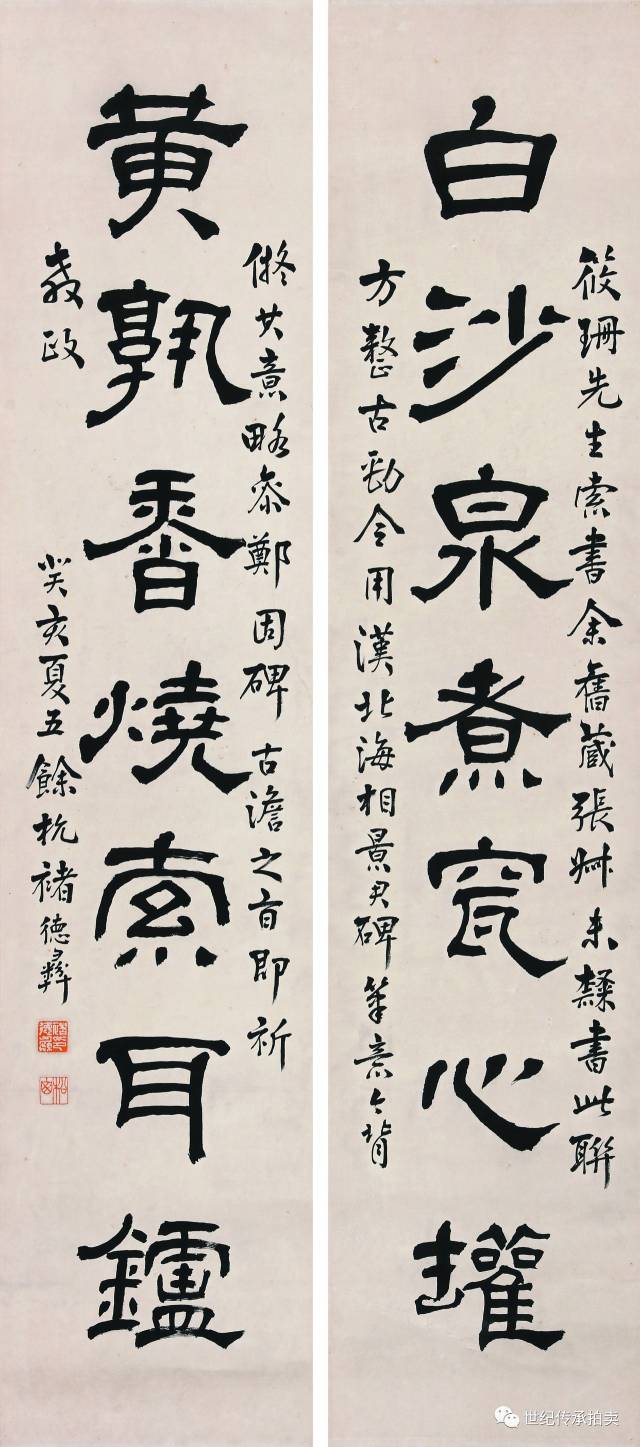 筱珊先生索書余舊藏張叔未隸書此聯
白沙泉煮窊心罐
方整古勁今用漢北海相景君碑筆意背
儗其意略参鄭固碑古澹之旨即祈
黄孰香燒索耳鑪
教政
癸亥夏五餘杭褚德彝
世纪传承拍卖